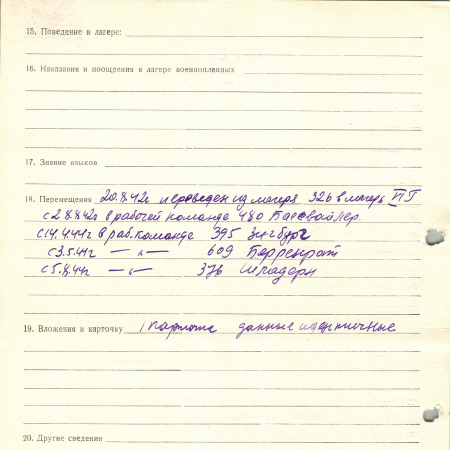 15. Поведение в лагере:
16. Наказания и поощрения в лагере военнопленных
17. Знание языков
18. Перемещения 20.8.42г переведен из лагеря 326 в лагерь VI Г
с 28.8.42г в рабочей команде 480 Баесвайлер.
с 14.4.44г в раб. команде 395 Зигбург
с 3.5.44г — „ — 609 Берренрат
с 5.8.44г — „ — 376
19. Вложения в карточку 1 карточка данные идентичные
20. Другие сведения